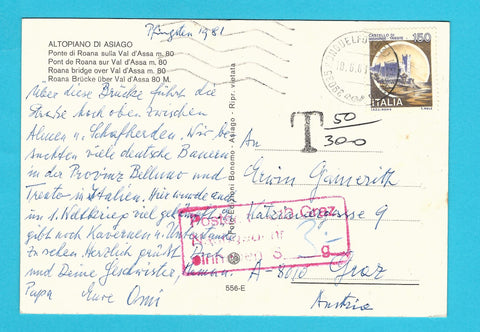 Pfingsten 1981
ALTOPIANO DI ASIAGO
Ponte di Roana sulla Val d'Assa m. 80
Pont de Roana sur Val d'Assa m. 80
Roana bridge over Val d'Assa m. 80
Roana Brücke über Val d'Assa 80 M.
Über diese Brücke führt die
Straße hoch oben zwischen
Almen u. Schafherden. Wir be-
suchten viele deutsche Bauern
in der Provinz Belluno und
Trento in Italien. Hier wurde auch
im 1. Weltkrieg viel gekämpft es
gibt noch Kavernen u. Unterstände
zu sehen. Herzlich grüßt Dich
und Deine Geschwister,
Papa Eure Omi
Foto Edizioni Bonomo - Asiago - Ripr. vietata
556-E
150
CASTELLO DI
MIRAMARE - TRIESTE
ITALIA
T 50
300
An
Erwin Gamerith
9
A-8010 Graz
Austria
Graz
S g